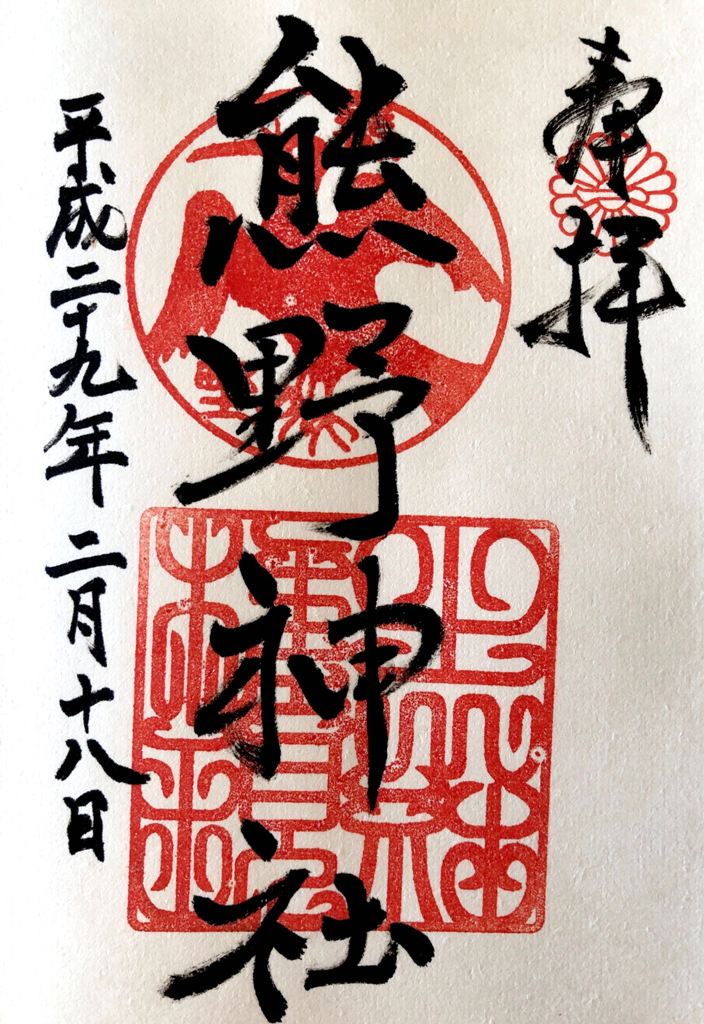 奉拝
熊野神社
平成二十九年二月十八日